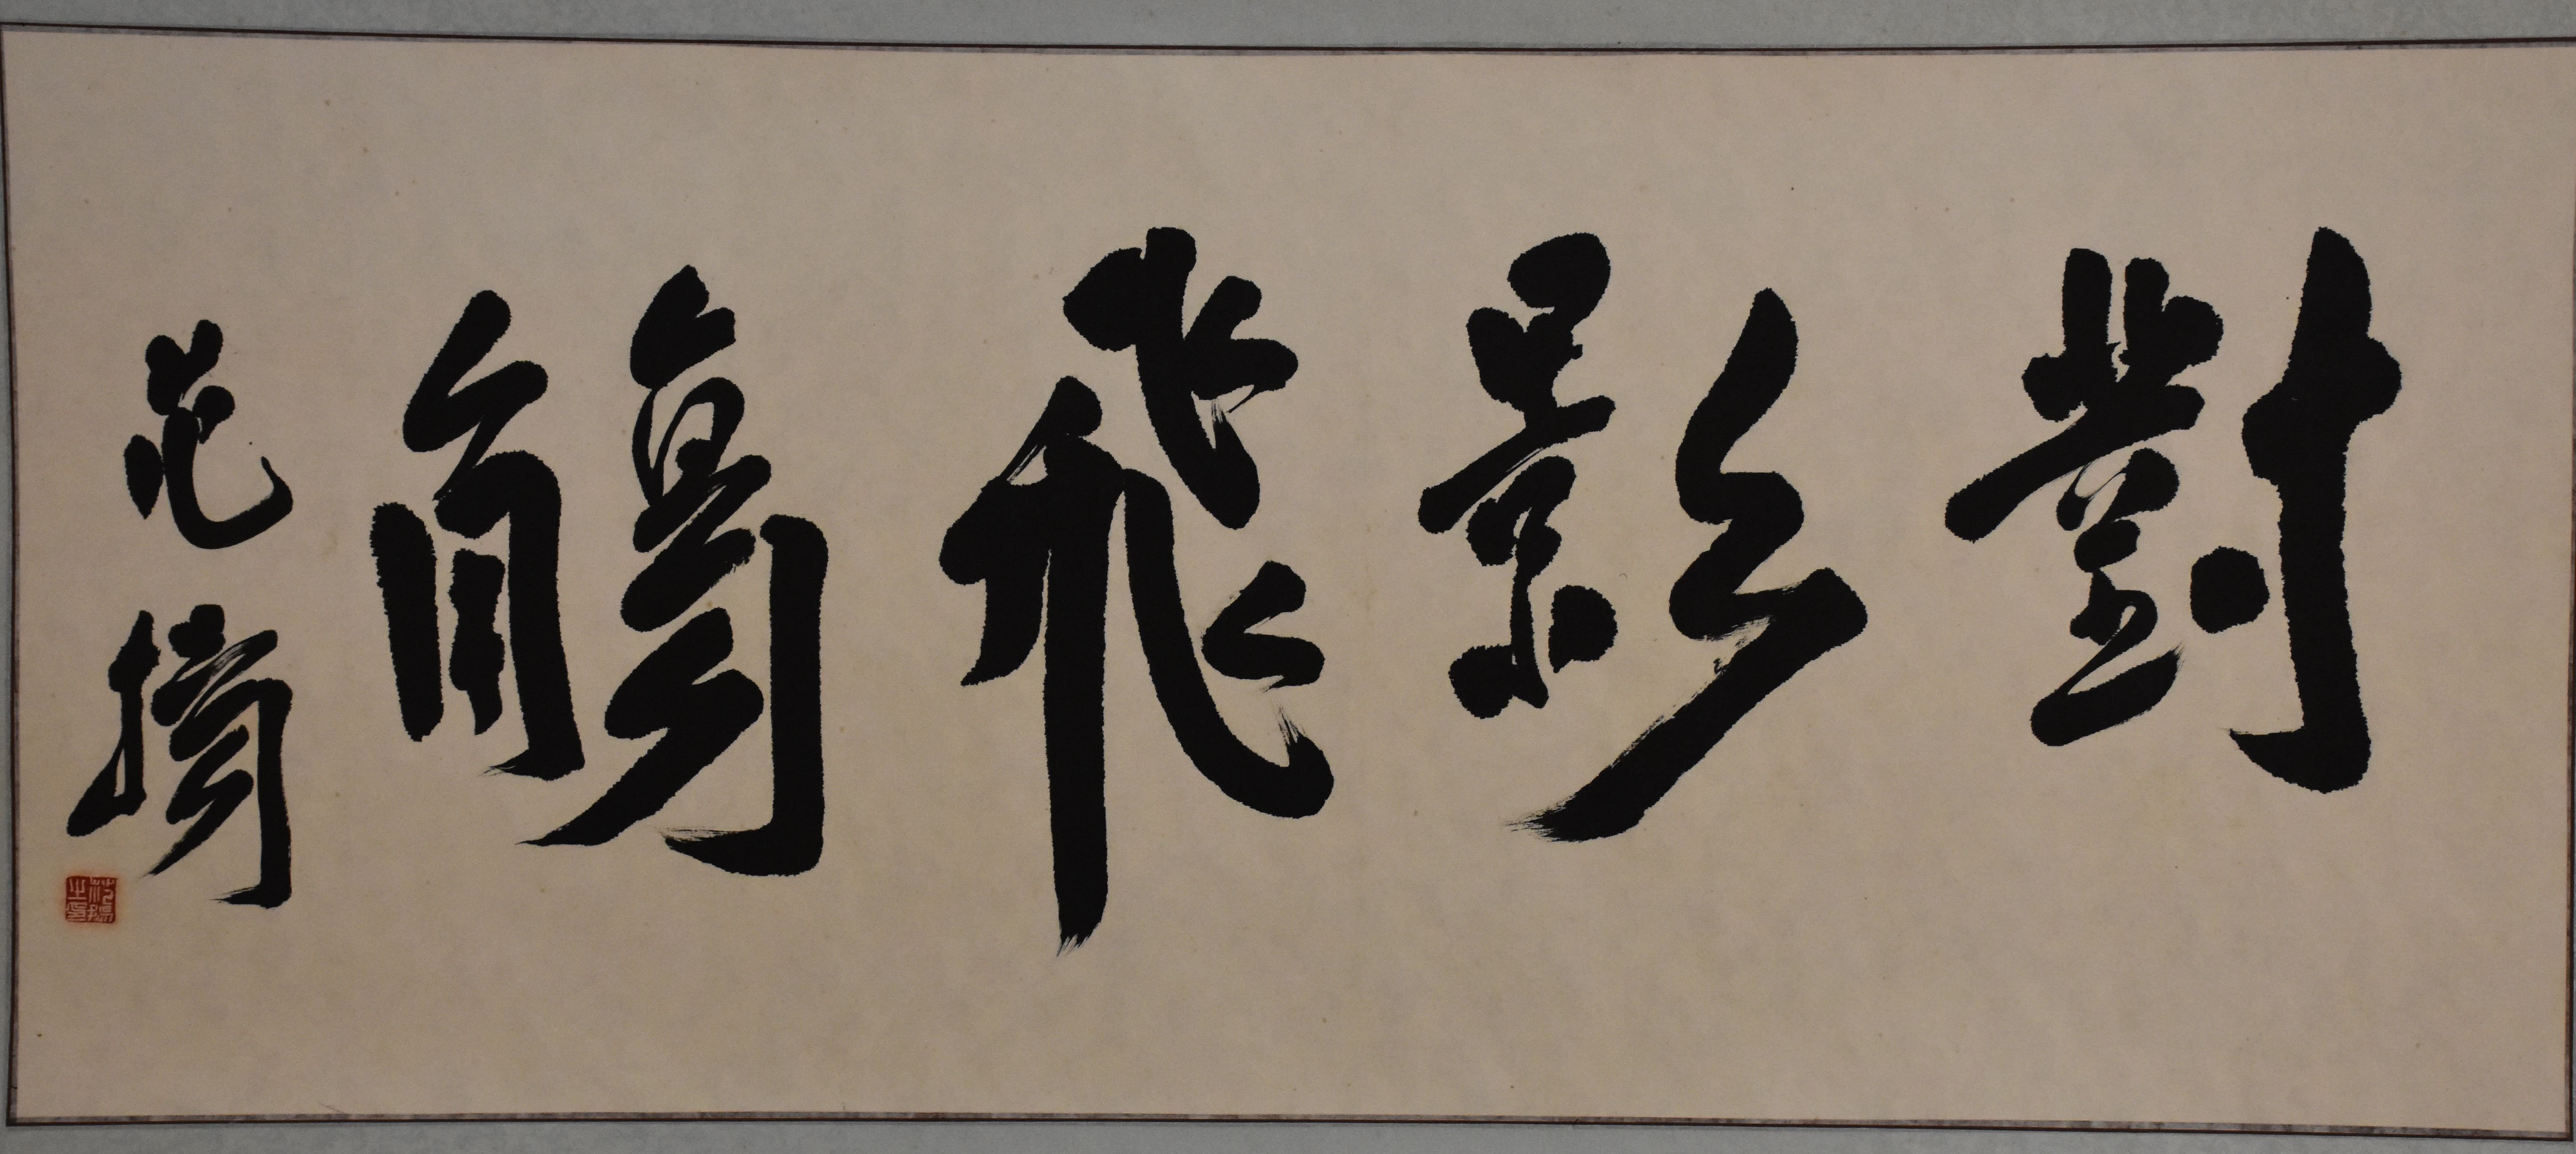 對影飛觴
范搗